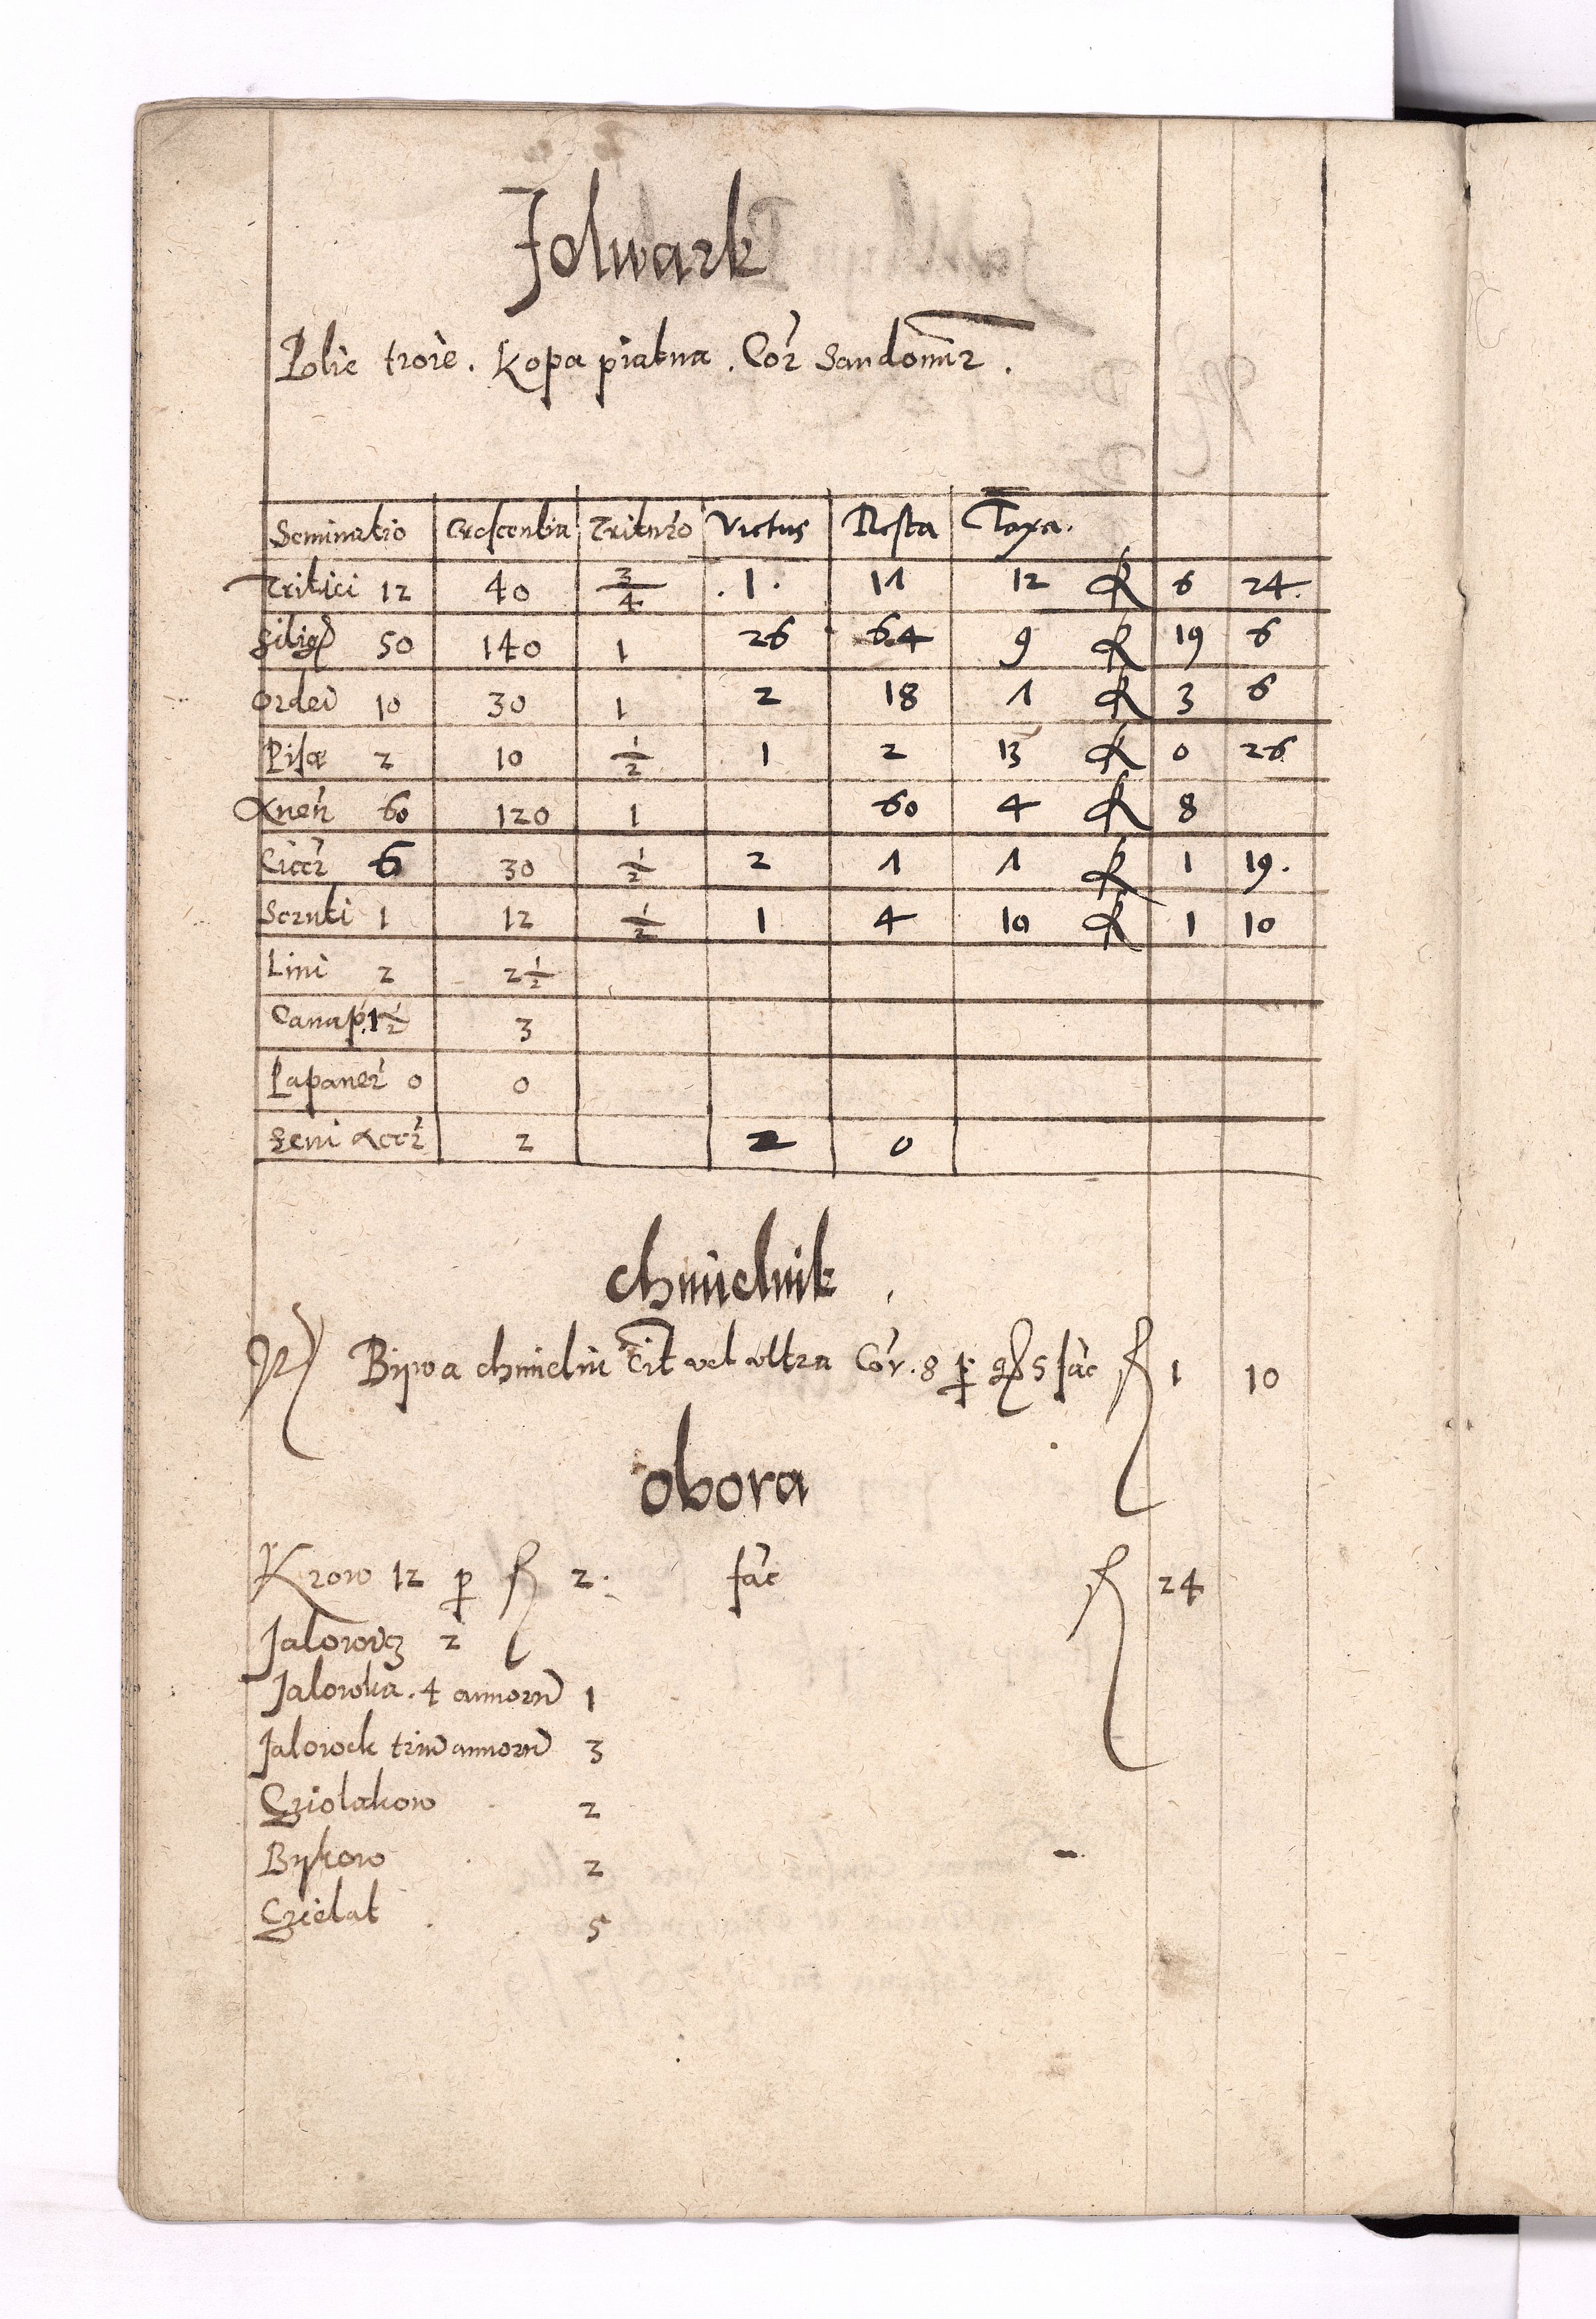 Folwark
Polie troie. Kopa piatna. Cor̃ Sandomir̃.
Seminatio Crescentia Trituro Victus Resta Taxa.
Tritici 12 40 3/4 .1. 11 12 6 24.
Silig 50 140 1 26 64 9 19 6
Ordei 10 30 1 2 18 1 3 6
Pisæ 2 10 1/2 1 2 13 0 26
Aven̄ 60 120 1 60 4 8
Cicer̄ 6 30 1/2 2 1 1 1 19.
Semti 1 12 1/2 1 4 10 1 10
Lini 2 2 1/2
Canap. 1 1/2 3
Papaver̄ 0 0
Feni Acer̄ 2 2 0
Chmielnik
Bywa chmieliu cit̄ vel ultra Cor̄. 8 p 5 fac̄ 1 10
Obora
Krow 12 p 2. fac̄ 24
Jalowic 2
Jalowka. 4 annorū 1
Jalowek triū annorū 3
Cziolakow 2
Bykow 2
Czielat 5